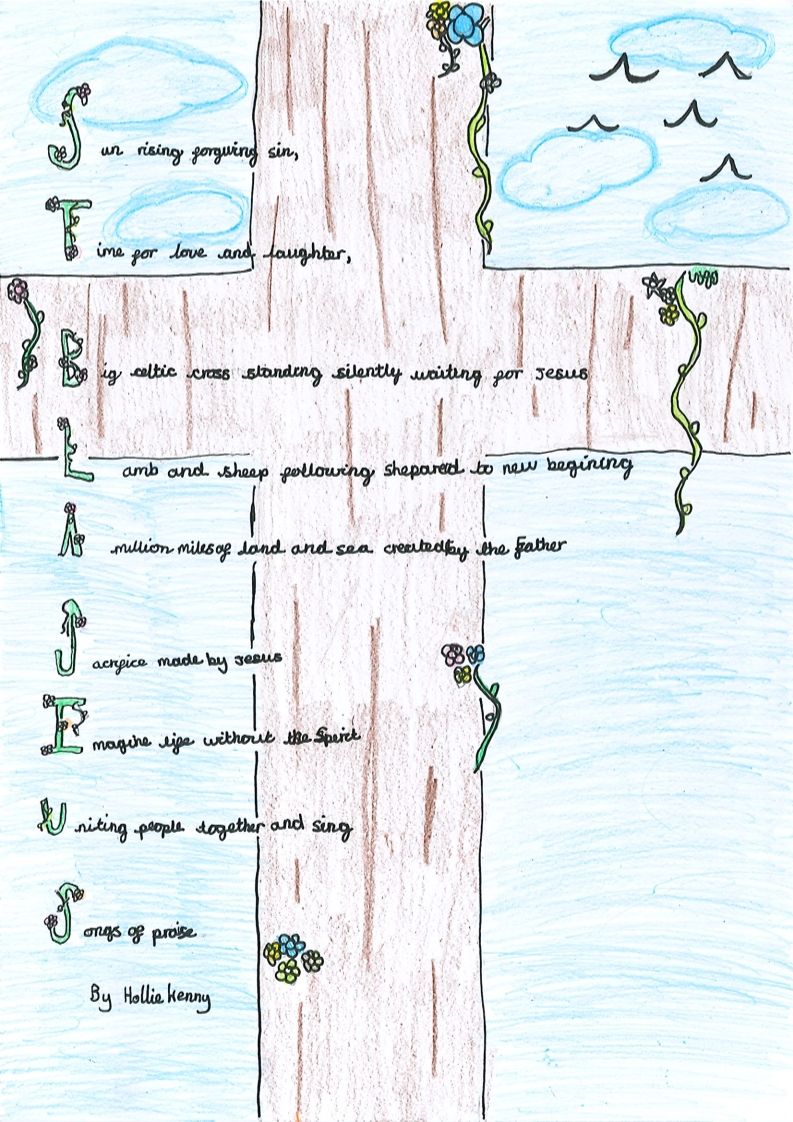 Sun rising forgiving sin,
Time for love and laughter,
Big celtic cross standing silently waiting for Jesus
Lamb and sheep following sheparad to new begining
A million miles of land and sea created by the Father
Jacrfice made by Jesus
Emagine life without the Spirit
Uniting people together and sing
Songs of praise
By Hollie Kenny